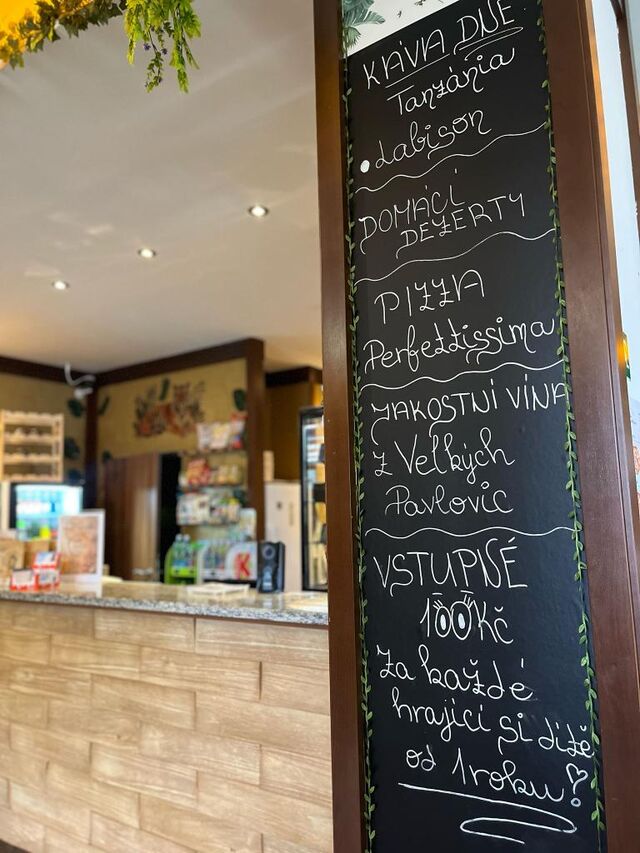 KÁVA DNE
Tanzánia
• Labison
DOMÁCÍ
DEZERTY
PIZZA
Perfettissima
JAKOSTNÍ VÍNA
z Velkých
Pavlovic
VSTUPNÉ
100 Kč
za každé
hrající si dítě
od 1 roku!
K